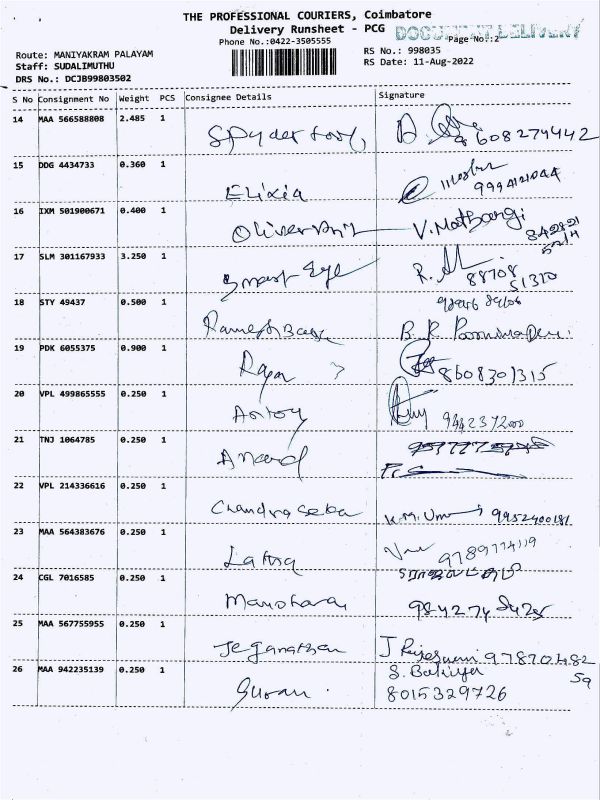 THE PROFESSIONAL COURIERS, Coimbatore
Delivery Runsheet - PCG
DOCUMENT DELIVERY
Phone No.:0422-3505555
Page No.:2
Route: MANIYAKRAM PALAYAM
RS No.: 998035
Staff: SUDALIMUTHU
RS Date: 11-Aug-2022
DRS No.: DCJB99803502
S No Consignment No Weight PCS Consignee Details Signature
14 MAA 566588808 2.485 1 Spyder
9608274442
15 DDG 4434733 0.360 1 Elixia
9994121044
16 IXM 501900671 0.400 1 V. Mathangi
17 SLM 301167933 3.250 1 Smart Eye
88708
51370
18 STY 49437 0.500 1 Ramesh
19 PDK 6055375 0.900 1 Rajan
8608301315
20 VPL 499865555 0.250 1 Antony
944237200
21 TNJ 1064785 0.250 1 Anand
22 VPL 214336616 0.250 1 Chandraseka
9952400181
23 MAA 564383676 0.250 1 Latha
9789774119
24 CGL 7016585 0.250 1 Manohara
25 MAA 567755955 0.250 1 Jeganathan J Rajeswari 97870482
59
26 MAA 942235139 0.250 1
8015329726